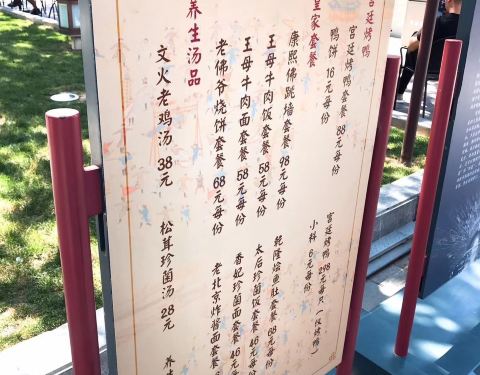 宫廷烤鸭
宫廷烤鸭套餐 88元每份
宫廷烤鸭 298元每只 (仅烤鸭)
鸭饼 16元每份
小料 6元每份
皇家套餐
康熙佛跳墙套餐 98元每份
乾隆烩鱼肚套餐
王母牛肉饭套餐 58元每份
太后珍菌饭套餐 46元每份
王母牛肉面套餐 58元每份
香妃珍菌面套餐 46元
老佛爷烧饼套餐 68元每份
老北京炸酱面套餐
养生汤品
文火老鸡汤 38元
松茸珍菌汤 28元
养